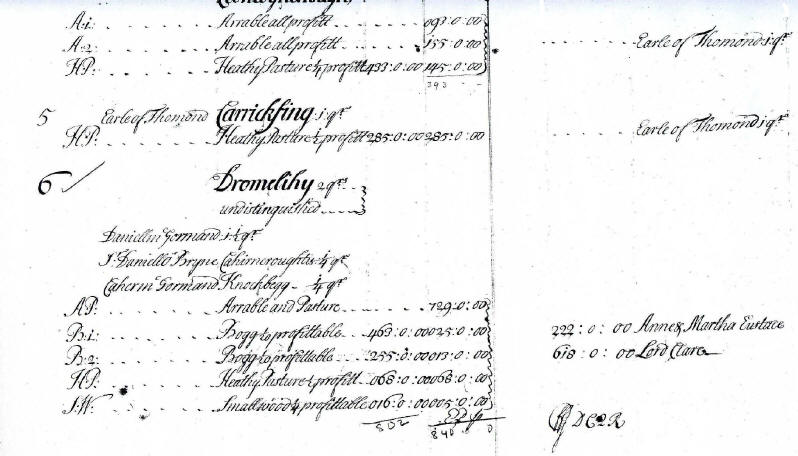 A:1: Arrable all profitt 093:0:00
A:2: Arrable all profitt 155:0:00 Earle of Thomond 1 qr
H:P: Heathy Pasture ¼ profitt 433:0:00 145:0:00
393
5 Earle of Thomond Carrickfing 1 qr
H:P: Heathy Pasture profitt 285:0:00 285:0:00 Earle of Thomond 1 qr
6 Dromelihy 2 qrs
undistinguished
Daniell mc Gormand 1 qr
J: Daniell o Bryne ¼ qr
Caher mc Gormand Knockbegg ¼ qr
A:P: Arrable and Pasture 729:0:00
B:1: Bogg to profittable 463:0:00 025:0:00 222:0:00 Anne & Martha Eustace
B:2: Bogg to profittable 255:0:00 013:0:00 618:0:00 Lord Clare
H:P: Heathy Pasture profitt 068:0:00 068:0:00
S:W: Small wood profittable 016:0:00 005:0:00
802 840 0 0